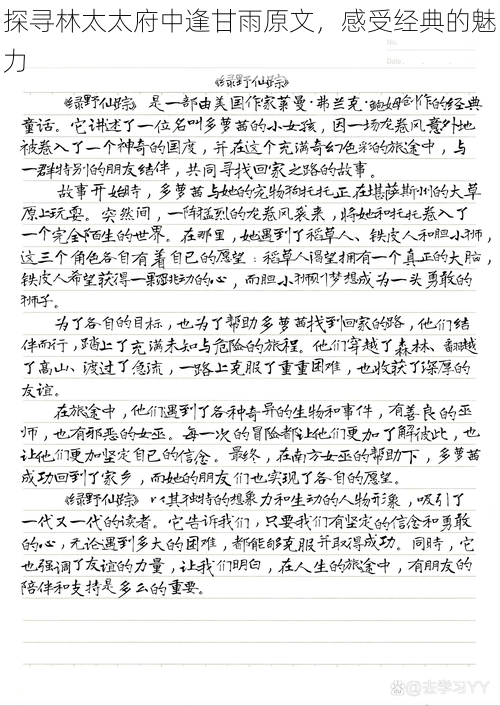 探寻林太太府中逢甘雨原文，感受经典的魅
力
No.
Date.
《绿野仙踪》
《绿野仙踪》是一部由美国作家莱曼·弗兰克·鲍姆创作的经典
童话。它讲述了一位名叫多萝茜的小女孩，因一场龙卷风意外地
被卷入了一个神奇的国度，并在这个充满奇幻色彩的旅途中，与
一群特别的朋友结伴，共同寻找回家之路的故事。
故事开始时，多萝茜与她的宠物狗托托正在堪萨斯州的大草
原上玩耍。突然间，一阵猛烈的龙卷风袭来，将她和托托卷入了
一个完全陌生的世界。在那里，她遇到了稻草人、铁皮人和胆小狮，
这三个角色各自有着自己的愿望：稻草人渴望拥有一个真正的大脑，
铁皮人希望获得一颗跳动的心，而胆小狮则梦想成为一头勇敢的
狮子。
为了各自的目标，也为了帮助多萝茜找到回家的路，他们结
伴而行，踏上了充满未知与危险的旅程。他们穿越了森林、翻越
了高山、渡过了急流，一路上克服了重重困难，也收获了深厚的
友谊。
在旅途中，他们遇到了各种奇异的生物和事件，有善良的巫
师，也有邪恶的女巫。每一次的冒险都让他们更加了解彼此，也
让他们更加坚定自己的信念。最终，在南方女巫的帮助下，多萝茜
成功回到了家乡，而她的朋友们也实现了各自的愿望。
《绿野仙踪》以其独特的想象力和生动的人物形象，吸引了
一代又一代的读者。它告诉我们，只要我们有坚定的信念和勇敢
的心，无论遇到多大的困难，都能够克服并取得成功。同时，它
也强调了友谊的力量，让我们明白，在人生的旅途中，有朋友的
陪伴和支持是多么的重要。
@去学习YY